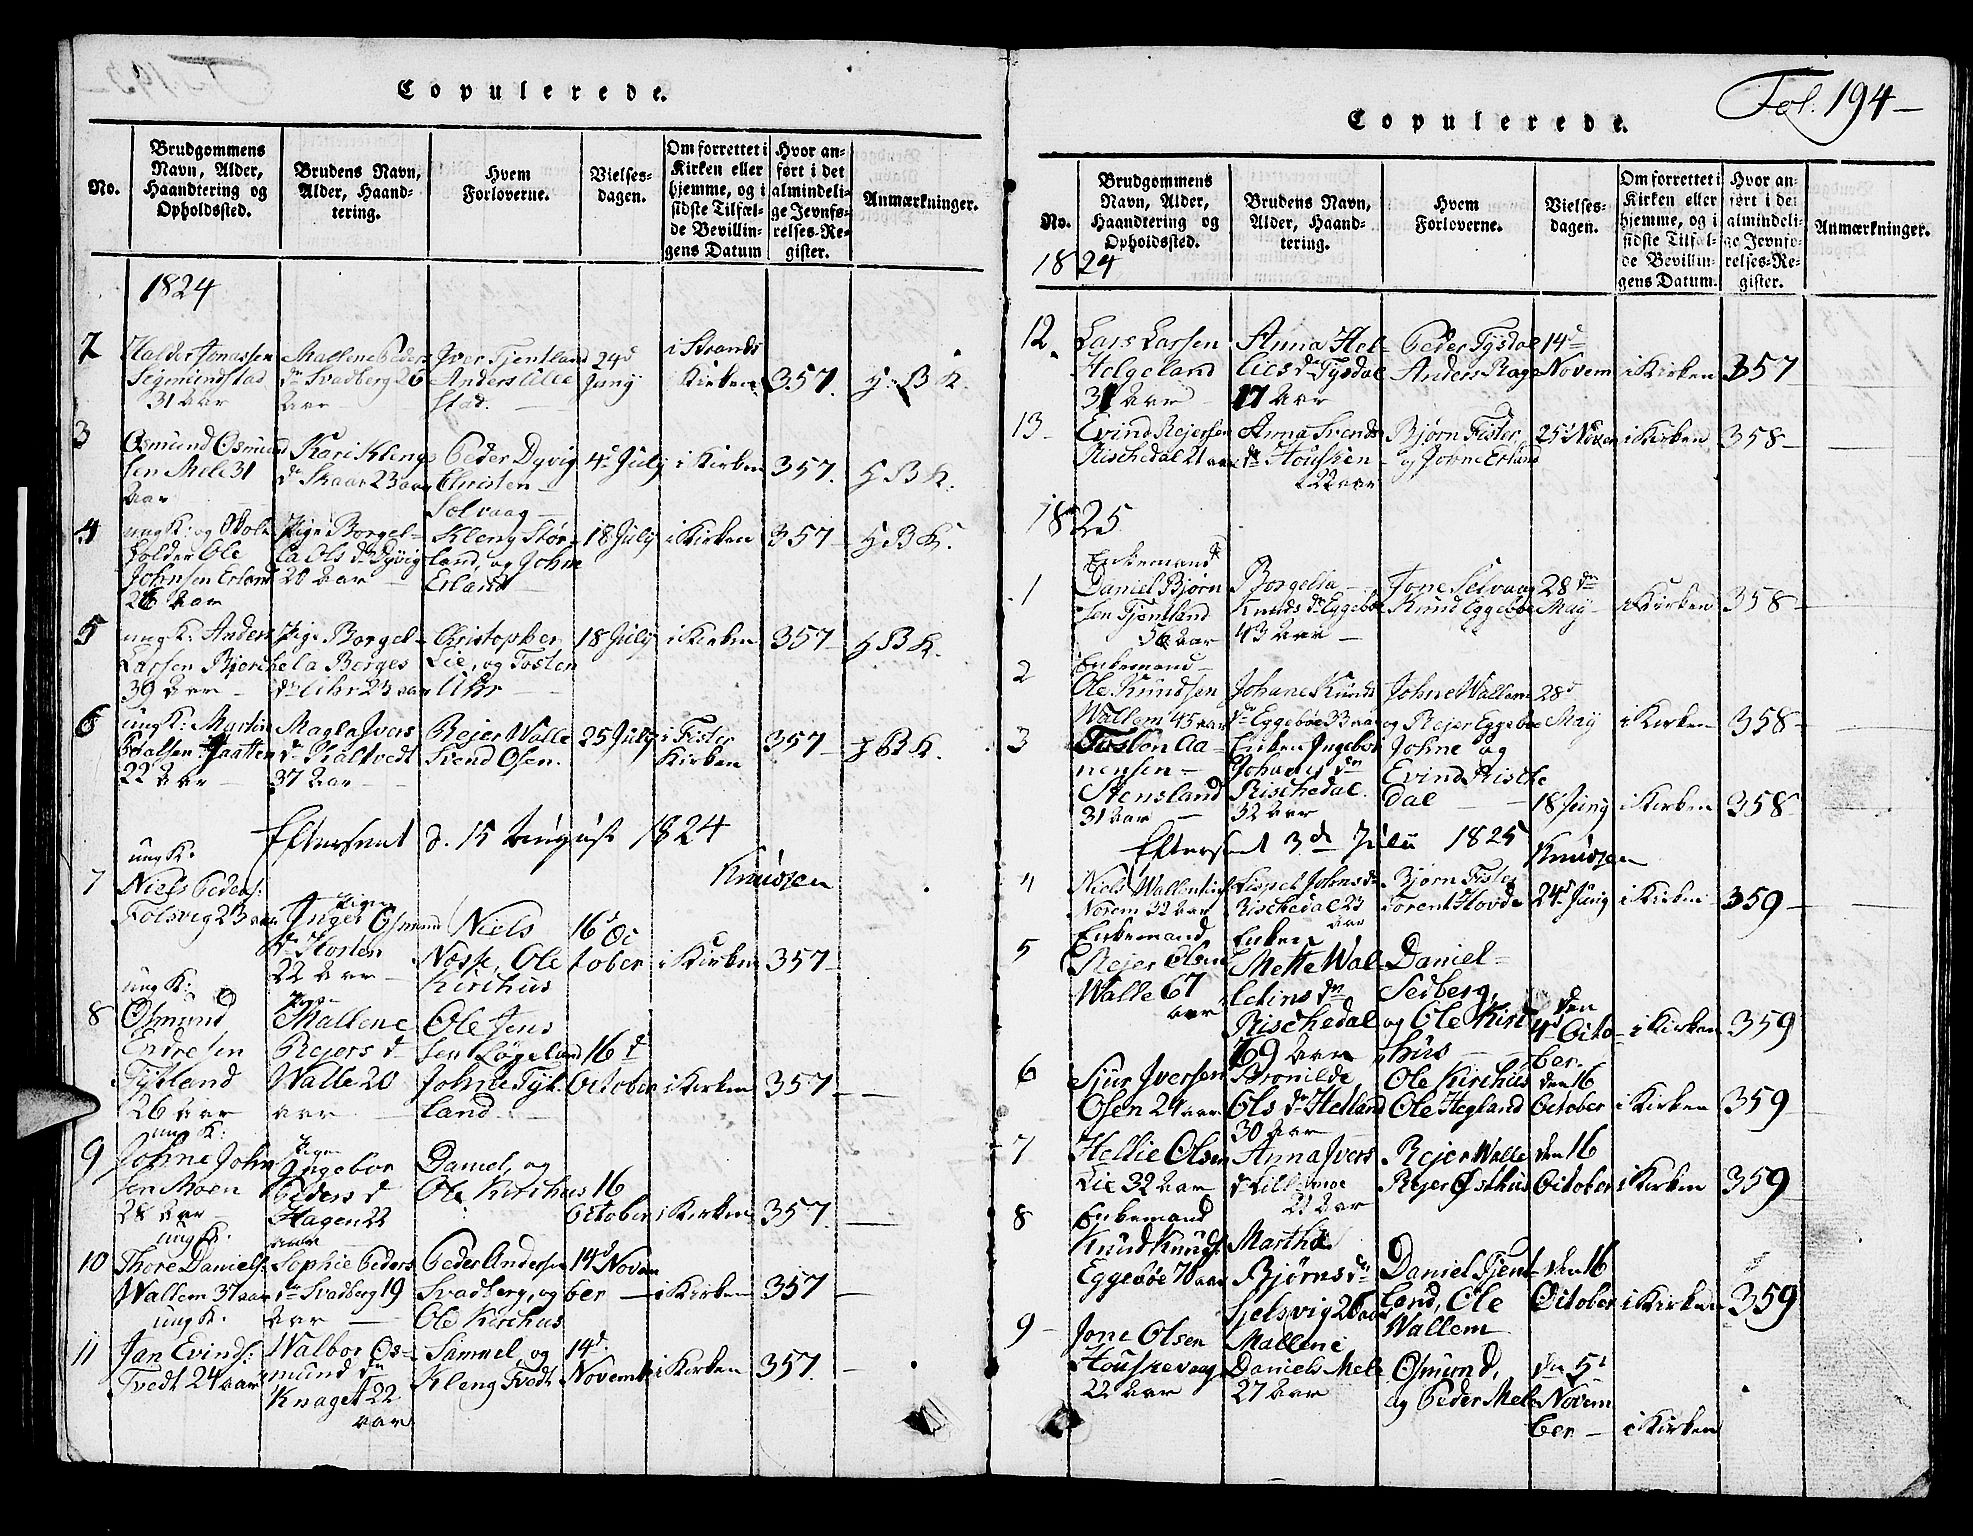 Copulerede.
No.
Brudgommens Navn, Alder, Haandtering og Opholdssted.
Brudens Navn, Alder, Haandtering.
Hvem Forloverne.
Vielses-dagen.
Om forrettet i Kirken eller hjemme, og i sidste Tilfælde Bevillingens Datum
Hvor anført i det almindelige Jevnførelses-Register.
Anmærkninger.
1824
2 Halder Jonassen Sigmundstad 31 Aar
Mallene Peders dr Svadberg 26 Aar
Iver Tjentland Anders Lillestad.
24d Juny
i Strands Kirken
357.
3 Osmund Osmundsen Mele 31 Aar
Kari Klengs dr Skaar 23 aar
Peder Dyvig Christen Solvaag
4d July
i Kirken
357.
4 ung K: og Skoleholder Ole Johnsen Erland 26 Aar
Pige Borgella Ols dr Dyvig 20 Aar
Kleng Størland, og Johne Erland
18 July
i Kirken
357
5 ung K: Anders Larsen Bjerche 39 Aar
Pige Borgela Børges dr Lihr 23 aar
Christopher Lie, og Tosten Lihr
18 July
i Kirken
357
6 ung K: Martin 22 Aar
Magla Ivers dr Skaltvedt 37 Aar
Rejer Walle Svend Osen.
25 July
i Fister Kirken
357
Efterseet d. 15 August 1824
Knudzen
7 ung K. Niels Peders: Folsvig 23 aar
Pigen Inger Osmunds dr Hosten 22 Aar
Niels Nosse, Ole Kirchus
16d October
i Kirken
357
8 ung K: Osmund Endresen Tytland 26 Aar
Pige Mallene Rejers d Walle 20 aar
Ole Jensen Løgeland Johne Tytland.
16d October
i Kirken
357
9 ung K: Johne Johnsen Moen 28 Aar
Pigen Ingebor Peders d Hagen 22 aar
Daniel, og Ole Kirchus
16 October
i Kirken
357.
10 ung K. Thore Daniels: Wallem 37 aar
Sophie Peders dr Svadberg 19 Aar
Peder Andersen Svadberg, og Ole Kirchus
14d November
i Kirken
357
11 ung K. Jan Evinds: Tvedt 24 aar
Walbor Osmund dr Knaget 22 aar
Samuel, og Kleng Tvedt
14d. November
i Kirken
357.
Fol. 194
Copulerede.
No.
Brudgommens Navn, Alder, Haandtering og Opholdssted.
Brudens Navn, Alder, Haandtering.
Hvem Forloverne.
Vielses-dagen.
Om forrettet i Kirken eller hjemme, og i sidste Tilfælde Bevillingens Datum.
Hvor anført i det almindelige Jevnførelses-Register.
Anmærkninger.
1824
12. Lars Larsen Helgeland 31 Aar
Anna Hellies dr Tysdal 17 Aar
Peder Tysdal Anders Rage
14d Novem
i Kirken
357
13 Evind Rejersen Rischedal 21 aar
Anna Svends dr Housken 22 aar
Bjørn Fister og Jovne Erland
25d Novem
i Kirken
358
1825
1 Enkemand Daniel Bjørnsen Tjentland 56 Aar
Borgelia Knuds dr Eggebøe 43 Aar
Tone Selvaag Knud Eggebøe
28de May
i Kirken
358
2 Enkemand Ole Knudsen Wallem 45 aar
Johane Knuds dr Eggebøe 33 aar
Johne Wallem og Rejer Eggebøe
28d May
i Kirken
358
3 Tosten Aanensen Stensland 31 Aar
Enken Ingebor Johanes dr Rischedal 32 Aar
Johne og Evind Rischedal
18 Juny
i Kirken
358
Efterseet 3de July 1825
Knudzen
4 Niels Wallentins Norem 32 Aar
Sispel Johns dr Rischedal 23 aar
Bjørn Fister Torent Hovde
24d Juny
i Kirken
359
5 Enkemand Rejer Olsen Walle 67 aar
Enken Mette Walentins dr Rischedal 69 Aar
Daniel Sedberg, og Ole Kirchus
den 4d October
i Kirken
359
6 Sjur Iversen Osen 24 aar
Bronilde Ols dr Helland 30 Aar
Ole Kirchus Ole Hegland
den 16 October
i Kirken
359
7 Hellie Olsen Lie 32 Aar
Anna Ivers d Lillemoe 21 Aar
Rejer Walle Rejer Østhus
den 16 October
i Kirken
359
8 Enkemand Knud Knuds: Eggebøe 70 aar
Martha Bjørns dr Sjelsvig 26 aar
Daniel Tjentland, Ole Wallem
den 16 October
i Kirken
359
9 Jone Olsen Houskevaag 22 Aar
Mallene Daniels Mele 27 Aar
Osmund, og Peder Mele
den 5t November
i Kirken